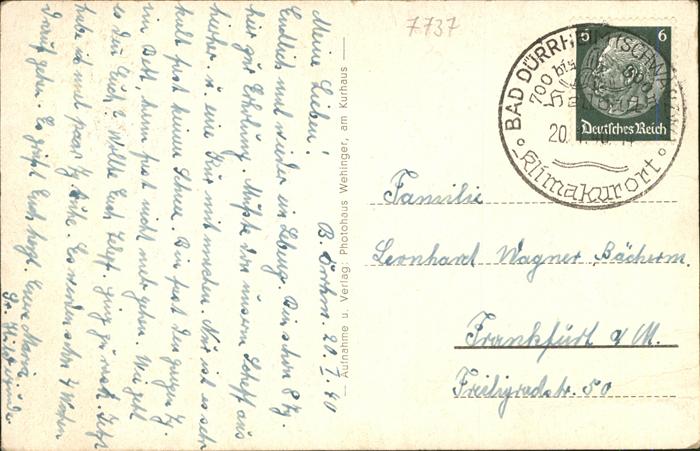 7737
BAD DÜRRHEIM (SCHWARZW.)
700 bis
Klimakurort
20.
6 6
Deutsches Reich
B. Dürrh. 20 I. 40
Meine Lieben!
Endlich mal wieder ein Lebenz. Bin schon 8 Tg.
hier zur Erholung. Mußte von unserm Chef aus
hierher u. eine Kur mit machen. Nur ist es sehr
kalt fast keinen Schnee. Bin fast den ganzen Tg.
im Bett, kann fast nicht mehr gehen. Wie geht
es denn Euch? Wollte Euch ging zu rück. Jetzt
habe ich mal paar Tg. Ruhe. Es werden schon 4 Wochen
darauf gehen. Es grüßt Euch herzl. Eure Maria
Sr. Hildegundis
— Aufnahme u. Verlag: Photohaus Wehinger, am Kurhaus —
Familie
Leonhard Wagner Bäckerm.
Frankfurt a/M.
Freiligradstr. 50